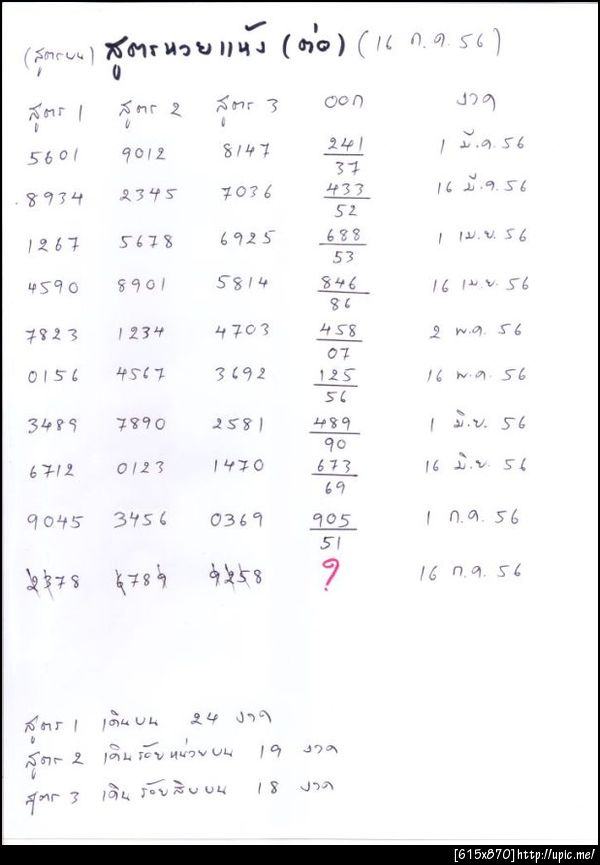 (สูตรบน) สูตรหวยแห้ง (ต่อ) (16 ก.ค. 56)
สูตร 1 สูตร 2 สูตร 3 ออก งวด
5601 9012 8147 241 1 มี.ค. 56
37
8934 2345 7036 433 16 มี.ค. 56
52
1267 5678 6925 688 1 เม.ย. 56
53
4590 8901 5814 846 16 เม.ย. 56
86
7823 1234 4703 458 2 พ.ค. 56
07
0156 4567 3692 125 16 พ.ค. 56
56
3489 7890 2581 489 1 มิ.ย. 56
90
6712 0123 1470 673 16 มิ.ย. 56
69
9045 3456 0369 905 1 ก.ค. 56
51
2378 6789 9258 ? 16 ก.ค. 56
สูตร 1 เดินบน 24 งวด
สูตร 2 เดินร้อยหน่วยบน 19 งวด
สูตร 3 เดินร้อยสิบบน 18 งวด
[615x870]http://upic.me/